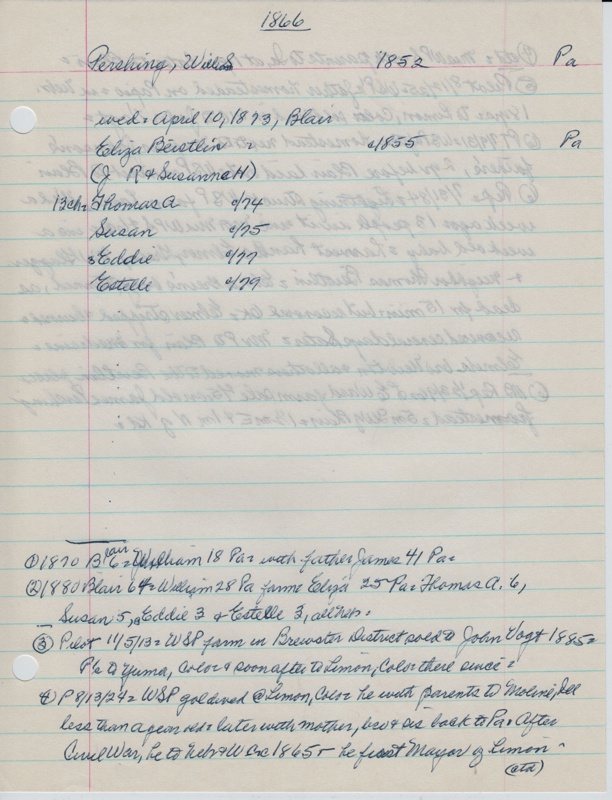 1866
Pershing, Will S 1852 Pa
wed = April 10, 1873, Blair
Eliza Beistlin = c/1855 Pa
(J R & Susanna H)
13 ch = Thomas A c/74
Susan c/75
Eddie c/77
Estelle c/79
① 1870 Blair = William 18 Pa = with father James 41 Pa =
② 1880 Blair 64 = William 28 Pa farms Eliza 25 Pa = Thomas A. 6,
Susan 5, Eddie 3 & Estelle 3, all Neb =
③ Pilot 11/5/13 = WSP farm in Brewster District sold to John Vogt 1885 =
P's to Yuma, Colo = & soon after to Limon, Colo = there since =
④ P 8/13/24 = WSP 90 died @ Limon, Colo = he with parents to Moline, Ill
less than a year old = later with mother, bro & sis back to Pa = After
Civil War, he to Nebr & W Co 1865 - he first Mayor of Limon -
(ctd)